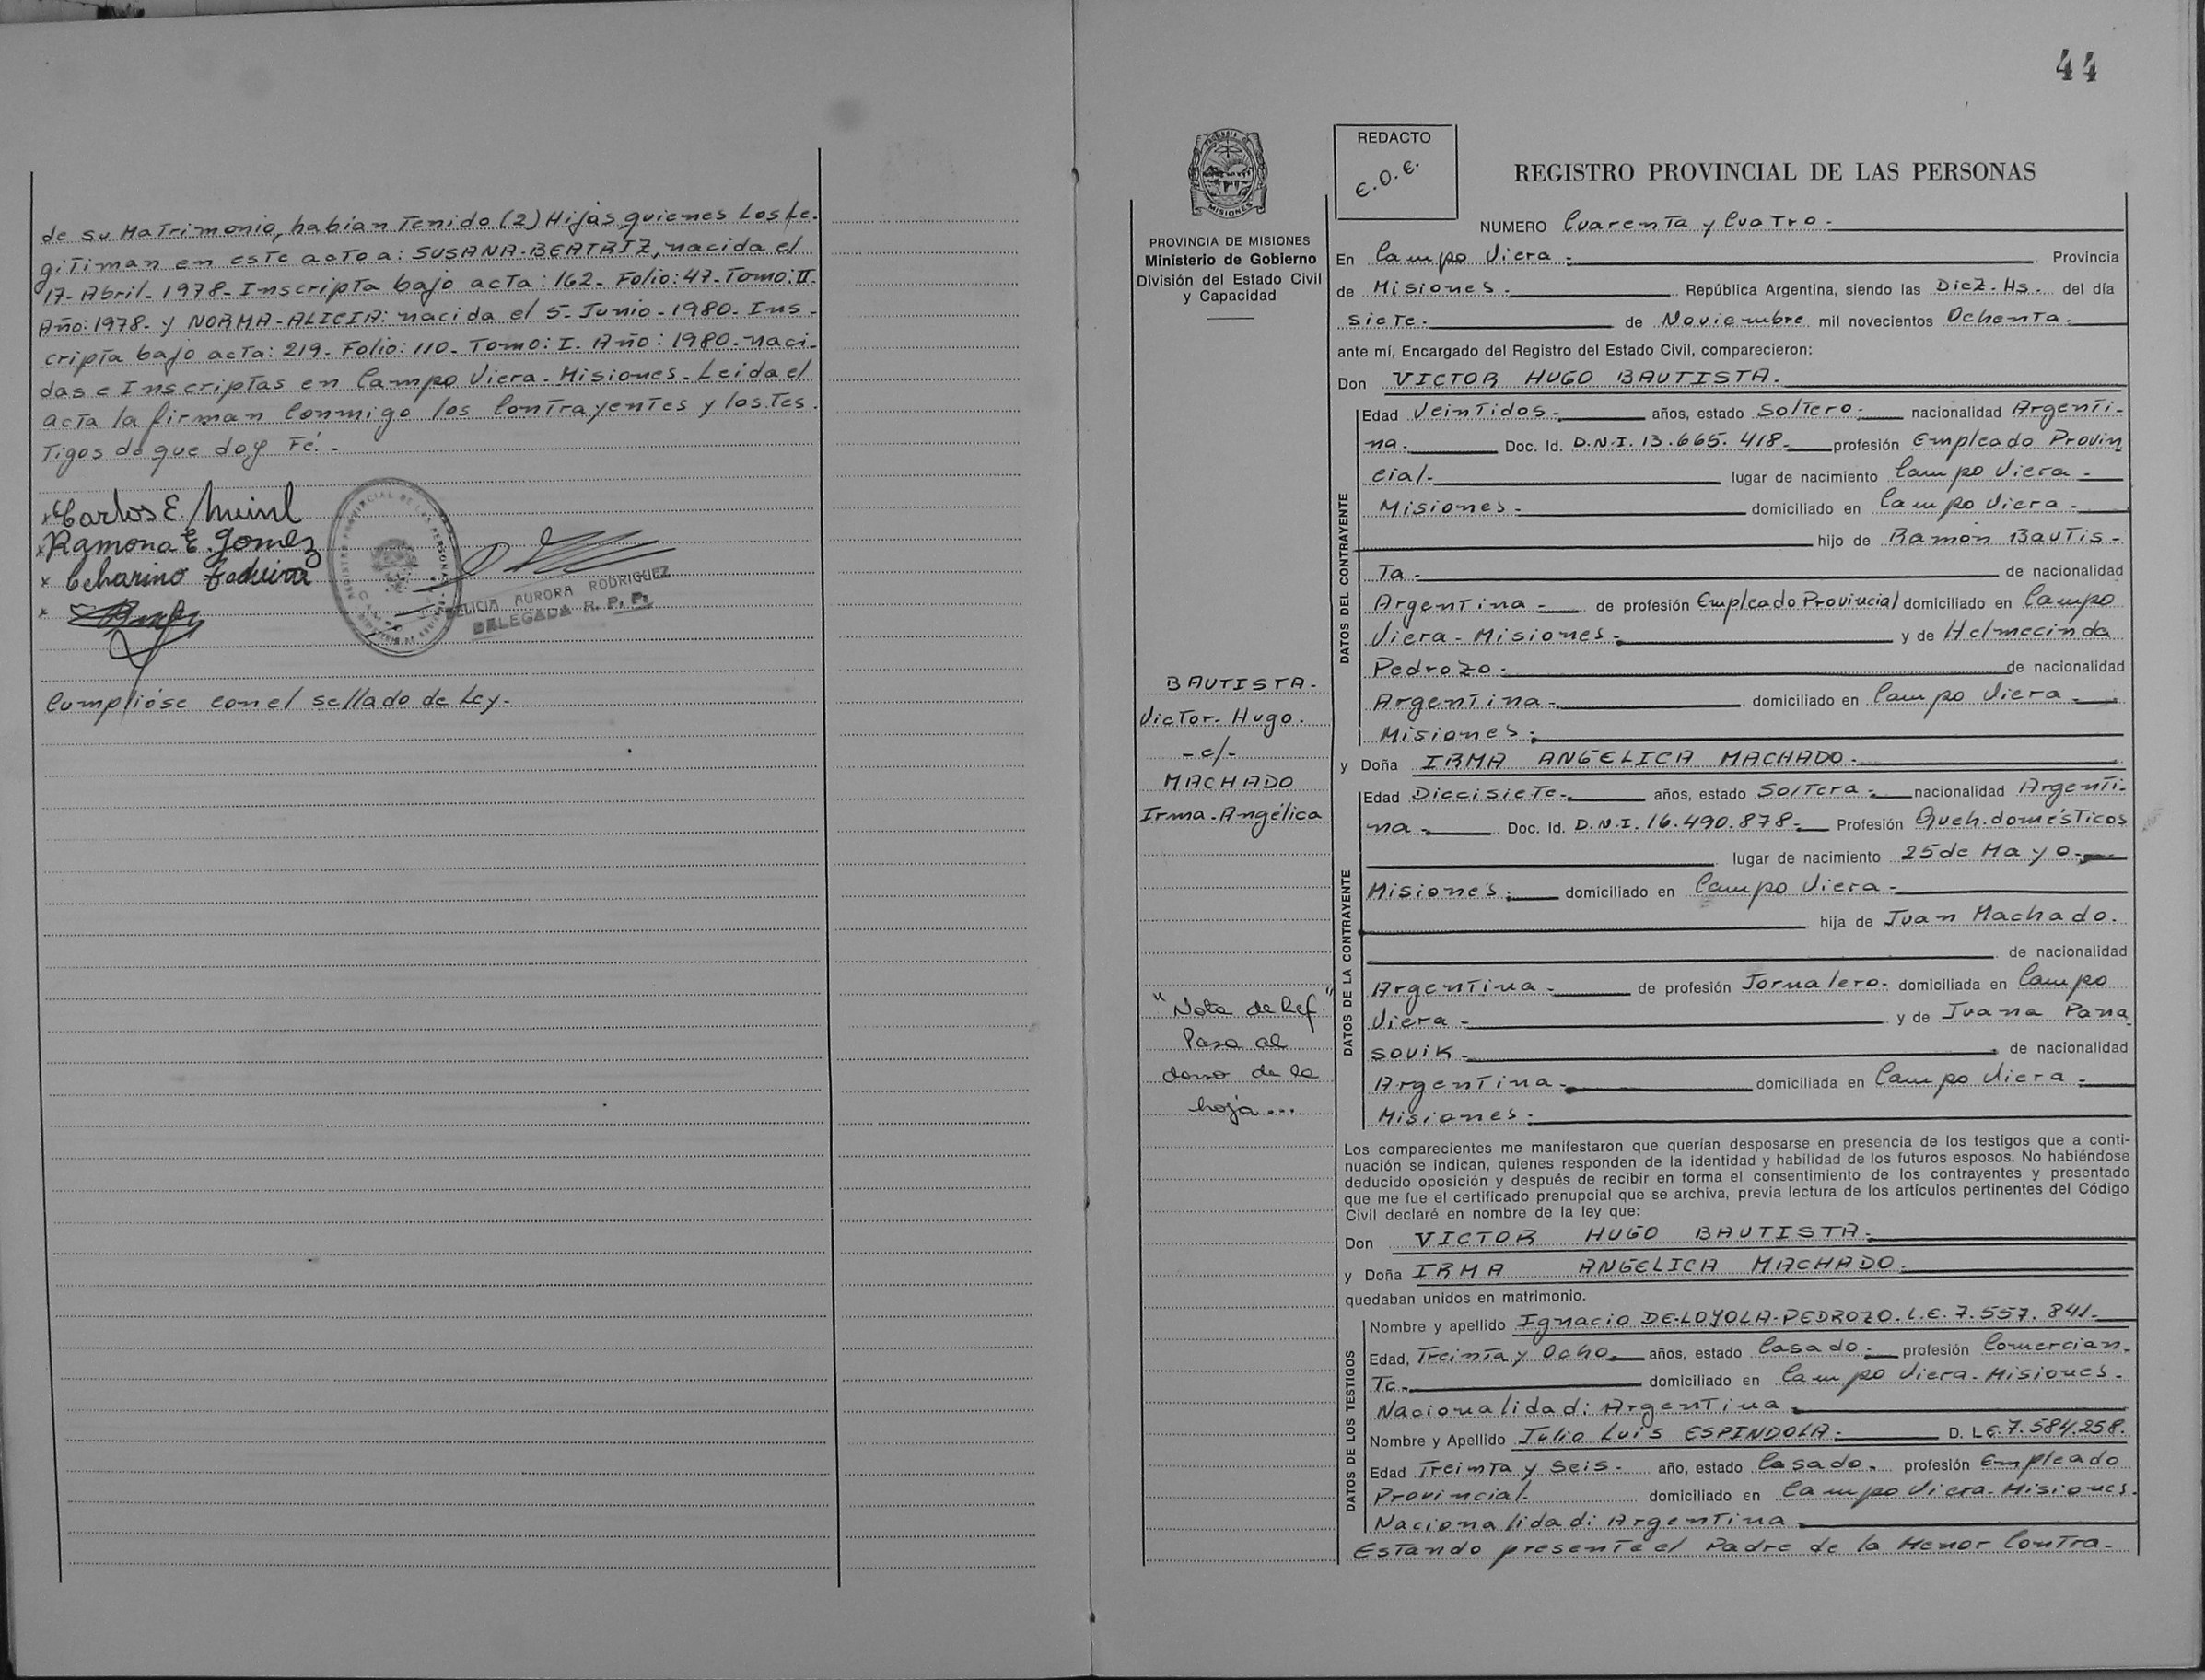 de su Matrimonio, habían Tenido (2) Hijas, quienes los Le-
giTiman en este acto a: SUSANA-BEATRIZ, nacida el
17- Abril- 1978- Inscripta bajo acta: 162- Folio: 47- Tomo: II-
Año: 1978- y NORMA-ALICIA: nacida el 5- Junio- 1980- Ins-
cripta bajo acta: 219- Folio: 110- Tomo: I- Año: 1980- naci-
das e Inscriptas en Campo Viera- Misiones- Leida el
acta la firman Conmigo los Contrayentes y los Tes-
Tigos de que doy Fé.-
x Carlos E.
x Ramona E. Gomez
x
x
REGISTRO PROVINCIAL DE LAS PERSONAS
FELICIA AURORA RODRIGUEZ
DELEGADA R. P. P.
Cumplióse con el sellado de Ley-
44
PROVINCIA DE MISIONES
Ministerio de Gobierno
División del Estado Civil
y Capacidad
BAUTISTA-
Victor- Hugo-
-c/-
MACHADO
Irma-Angélica
"Nota de Ref."
Pasa al
dorso de la
hoja...
REDACTO
E.O.E.
REGISTRO PROVINCIAL DE LAS PERSONAS
NUMERO Cuarenta y Cuatro-
En Campo Viera- Provincia
de Misiones- República Argentina, siendo las Diez-Hs- del día
Siete- de Noviembre mil novecientos Ochenta-
ante mí, Encargado del Registro del Estado Civil, comparecieron:
Don VICTOR HUGO BAUTISTA-
DATOS DEL CONTRAYENTE
Edad Veintidos- años, estado Soltero- nacionalidad Argenti-
na- Doc. Id. D.N.I. 13.665.418- profesión Empleado Provin
cial- lugar de nacimiento Campo Viera-
Misiones- domiciliado en Campo Viera-
hijo de Ramón Bautis-
Ta- de nacionalidad
Argentina- de profesión Empleado Provincial domiciliado en Campo
Viera- Misiones- y de Helmecinda
Pedrozo- de nacionalidad
Argentina- domiciliado en Campo Viera-
Misiones-
y Doña IRMA ANGELICA MACHADO-
DATOS DE LA CONTRAYENTE
Edad Diecisiete- años, estado Soltera- nacionalidad Argenti-
na- Doc. Id. D.N.I. 16.490.878- Profesión Queh. domésticos
lugar de nacimiento 25 de Mayo-
Misiones- domiciliado en Campo Viera-
hija de Juan Machado-
de nacionalidad
Argentina- de profesión Jornalero- domiciliada en Campo
Viera- y de Juana Pana
sovik- de nacionalidad
Argentina- domiciliada en Campo Viera-
Misiones-
Los comparecientes me manifestaron que querían desposarse en presencia de los testigos que a conti-
nuación se indican, quienes responden de la identidad y habilidad de los futuros esposos. No habiéndose
deducido oposición y después de recibir en forma el consentimiento de los contrayentes y presentado
que me fue el certificado prenupcial que se archiva, previa lectura de los artículos pertinentes del Código
Civil declaré en nombre de la ley que:
Don VICTOR HUGO BAUTISTA-
y Doña IRMA ANGELICA MACHADO-
quedaban unidos en matrimonio.
DATOS DE LOS TESTIGOS
Nombre y apellido Ignacio DE-LOYOLA-PEDROZO- L.E. 7.557.841-
Edad, Treinta y Ocho- años, estado Casado- profesión Comercian-
Te- domiciliado en Campo Viera- Misiones-
Nacionalidad: Argentina-
Nombre y Apellido Julio Luis ESPINDOLA- D. L.E. 7.584.258-
Edad Treinta y Seis- año, estado Casado- profesión Empleado
Provincial- domiciliado en Campo Viera- Misiones-
Nacionalidad: Argentina-
Estando presente el Padre de la Menor Contra-